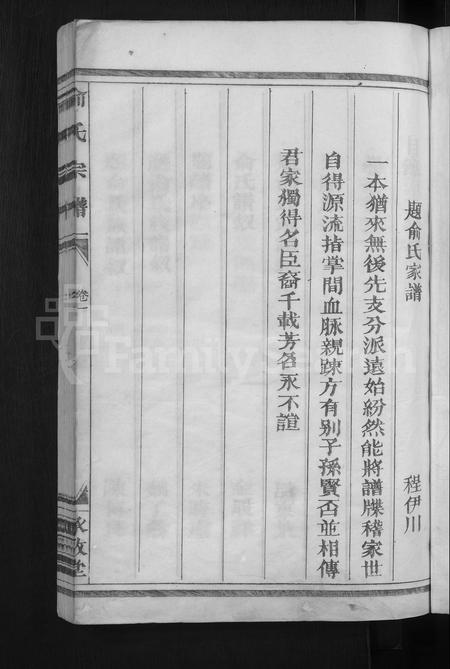 題俞氏家譜
程伊川
一本猶來無後先支分派遠始紛然能將譜牒稽家世
自得源流指掌間血脉親踈方有别子孫賢否並相傳
君家獨得名臣裔千載芳名永不諠
俞氏宗譜
卷一
敦堂
FamilySearch